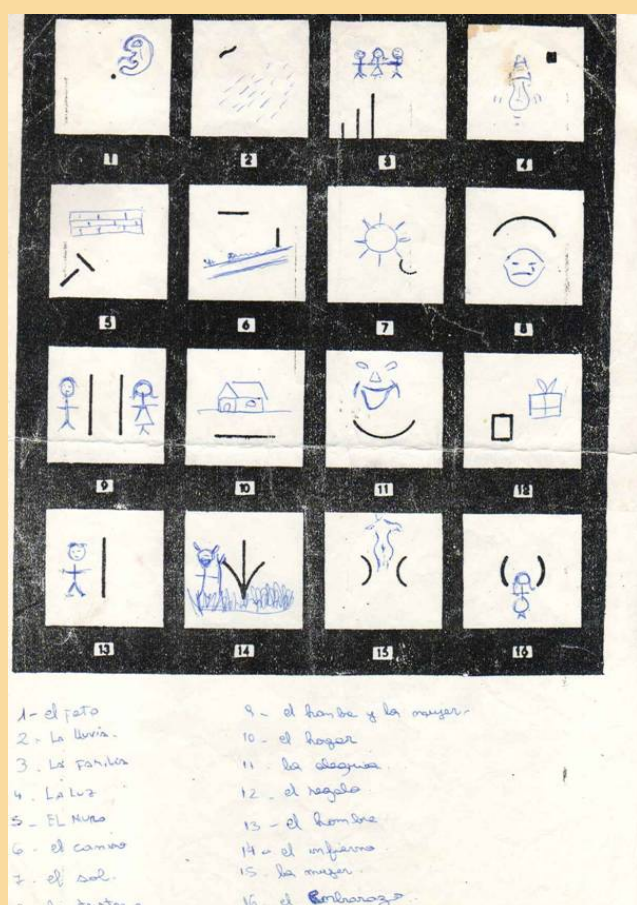 1 2 3 4
5 6 7 8
9 10 11 12
13 14 15 16
1- el feto
2. La lluvia.
3. La Familia
4. La Luz
5- EL MURO
6. el camino
7. el sol.
9- el hombre y la mujer.
10- el hogar
11. la alegria.
12. el regalo.
13- el hombre
14- el infierno
15. la mujer.
16. el Embarazo.